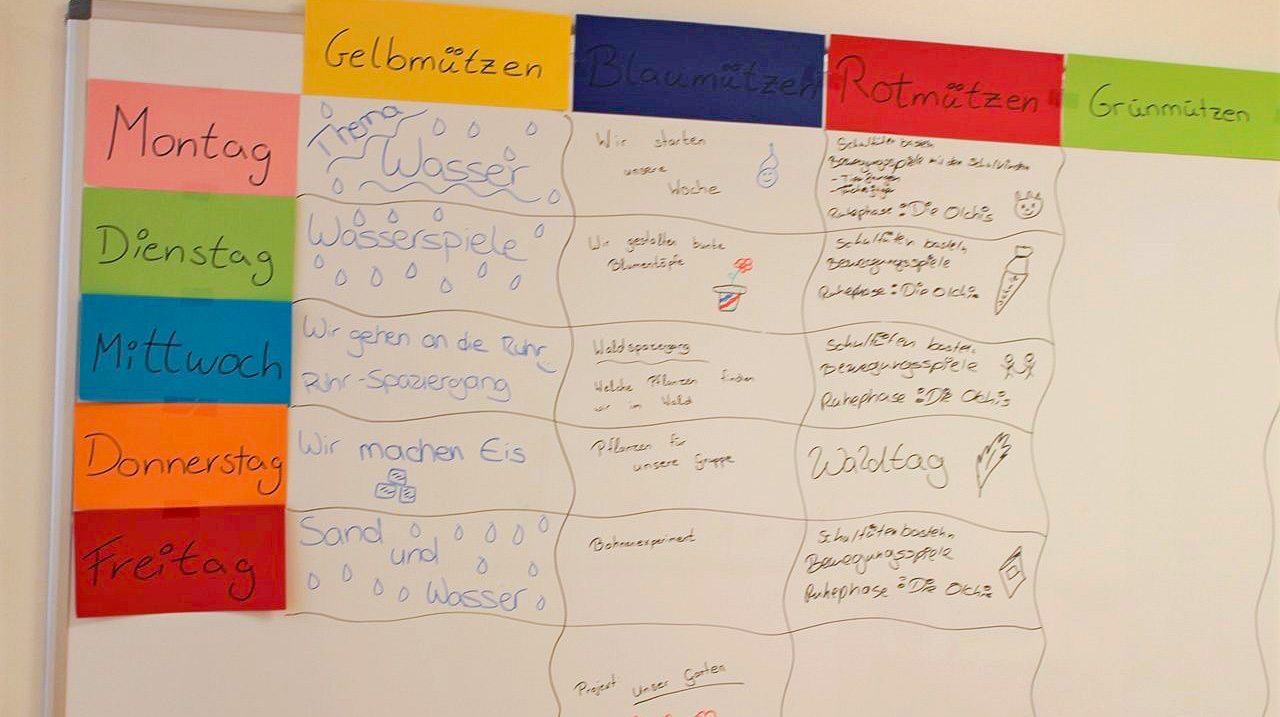 Gelbmützen
Blaumützen
Rotmützen
Grünmützen
Montag
Thema
Wasser
Wir starten
unsere
Woche
Schultüten basteln
Bewegungsspiele mit den Schulkindern
Ruhephase: Die Olchis
Dienstag
Wasserspiele
Wir gestalten bunte
Blumentöpfe
Schultüten basteln
Bewegungsspiele
Ruhephase: Die Olchis
Mittwoch
Wir gehen an die Ruhr
Ruhr-Spaziergang
Waldspaziergang
Welche Pflanzen finden
wir im Wald
Schultüten basteln
Bewegungsspiele
Ruhephase: Die Olchis
Donnerstag
Wir machen Eis
Pflanzen für
unsere Gruppe
Waldtag
Freitag
Sand
und
Wasser
Bohnenexperiment
Schultüten basteln
Bewegungsspiele
Ruhephase: Die Olchis
Projekt: Unser Garten